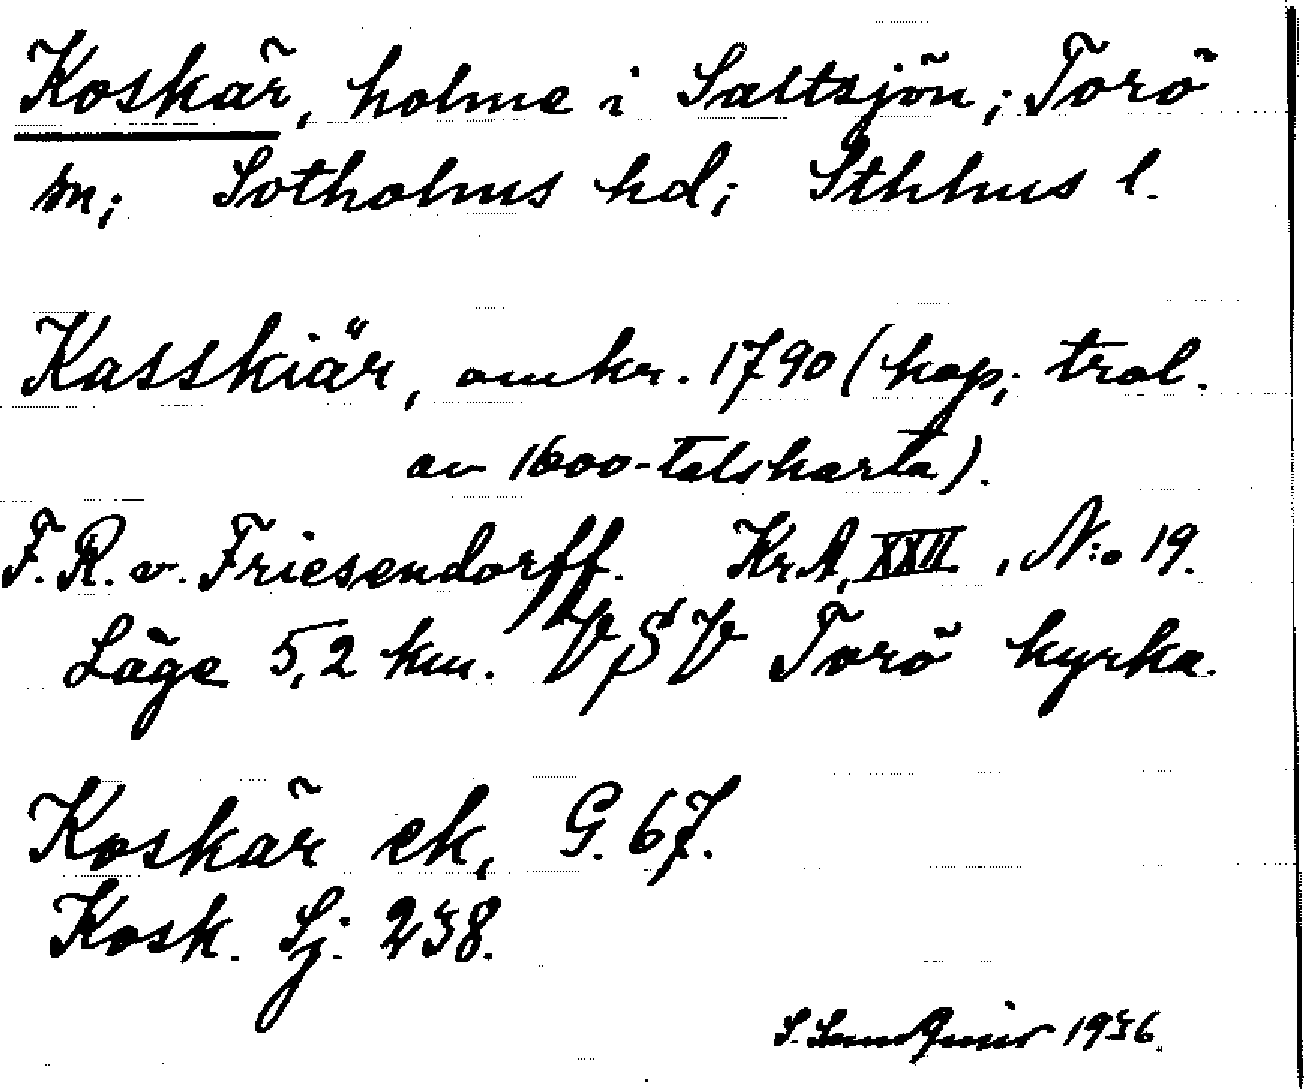 Koskär, holme i Saltsjön; Torö
sn; Sotholms hd; Sthlms l.
Kasskiär, omkr. 1790 (kop, trol.
av 1600-talskarta).
F. R. v. Friesendorff. Kr.A, XXII, N:o 19.
Läge 5,2 km. VSV Torö kyrka.
Koskär ek, G. 67.
Kosk. Sj. 238.
S. 1936